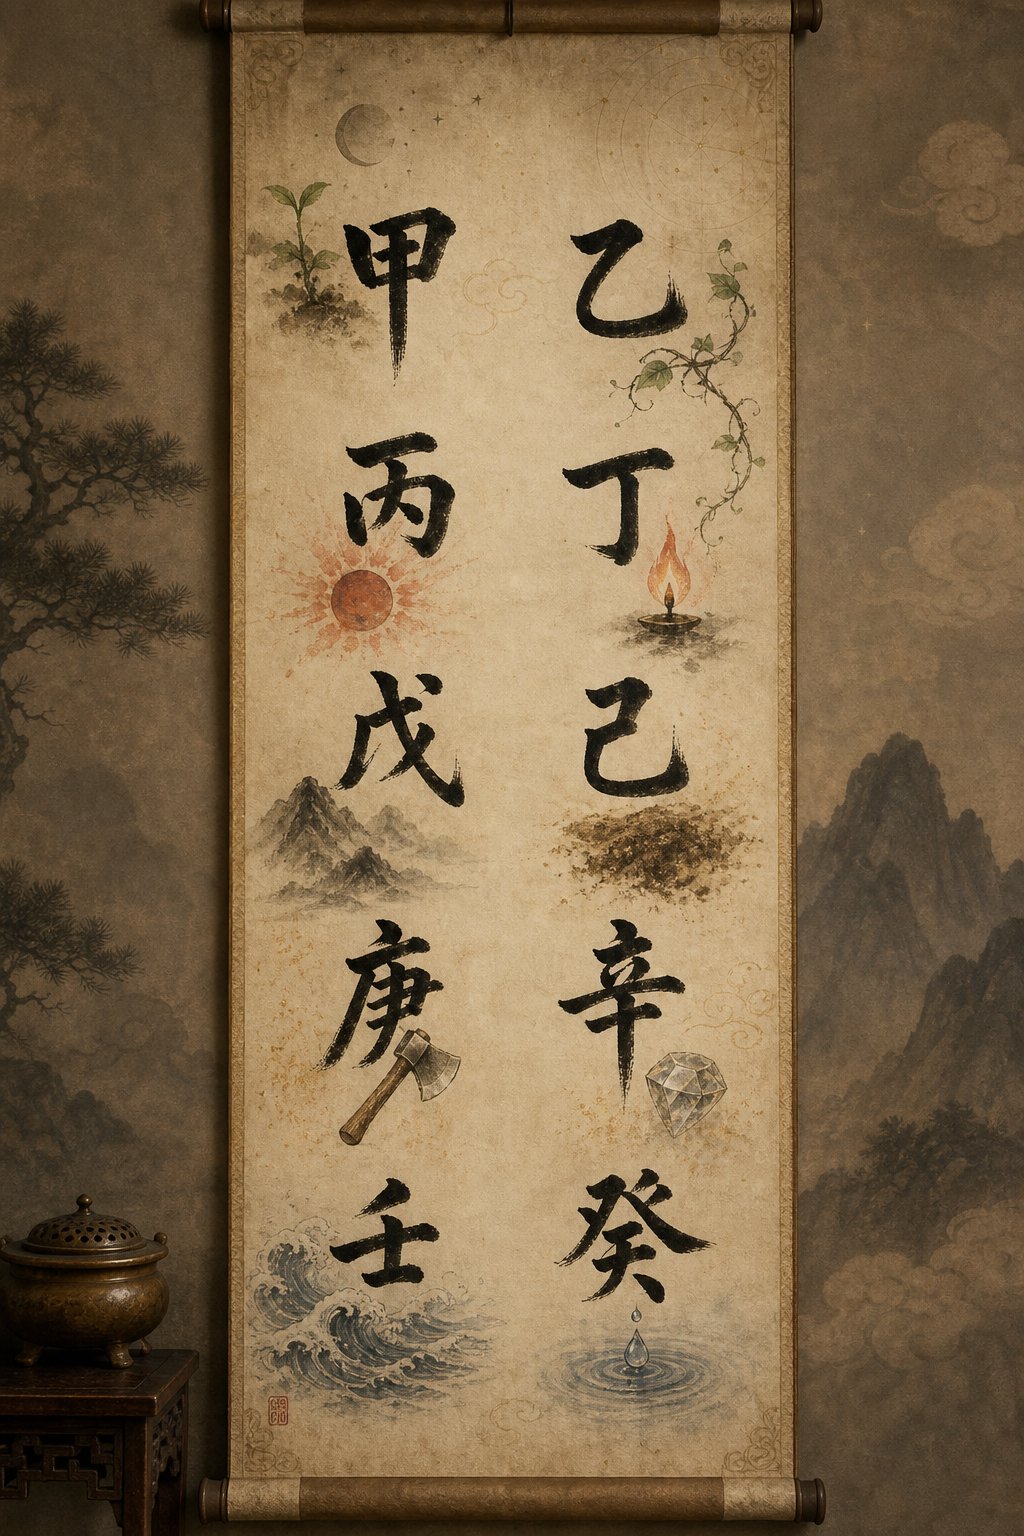 甲 乙
丙 丁
戊 己
庚 辛
壬 癸